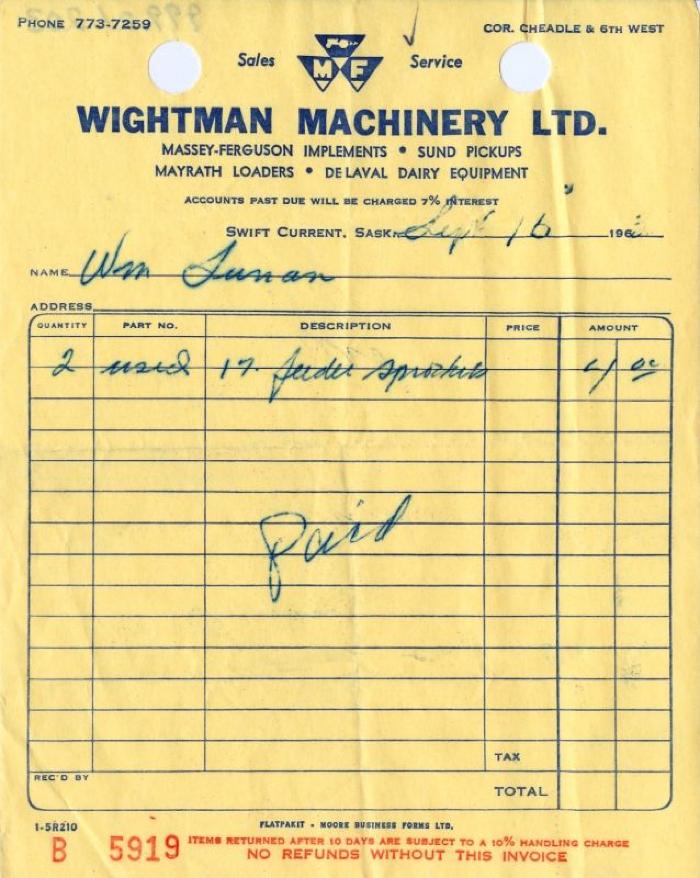 PHONE 773-7259
COR. CHEADLE & 6TH WEST
Sales MF Service
WIGHTMAN MACHINERY LTD.
MASSEY-FERGUSON IMPLEMENTS • SUND PICKUPS
MAYRATH LOADERS • DE LAVAL DAIRY EQUIPMENT
ACCOUNTS PAST DUE WILL BE CHARGED 7% INTEREST
SWIFT CURRENT, SASK. Sept 16 196
NAME Wm Lunan
ADDRESS
QUANTITY PART NO. DESCRIPTION PRICE AMOUNT
2 used 17. feeder sprockets 4 00
Paid
TAX
REC'D BY
TOTAL
1-5R210 FLATPAKIT - MOORE BUSINESS FORMS LTD.
B 5919 ITEMS RETURNED AFTER 10 DAYS ARE SUBJECT TO A 10% HANDLING CHARGE
NO REFUNDS WITHOUT THIS INVOICE